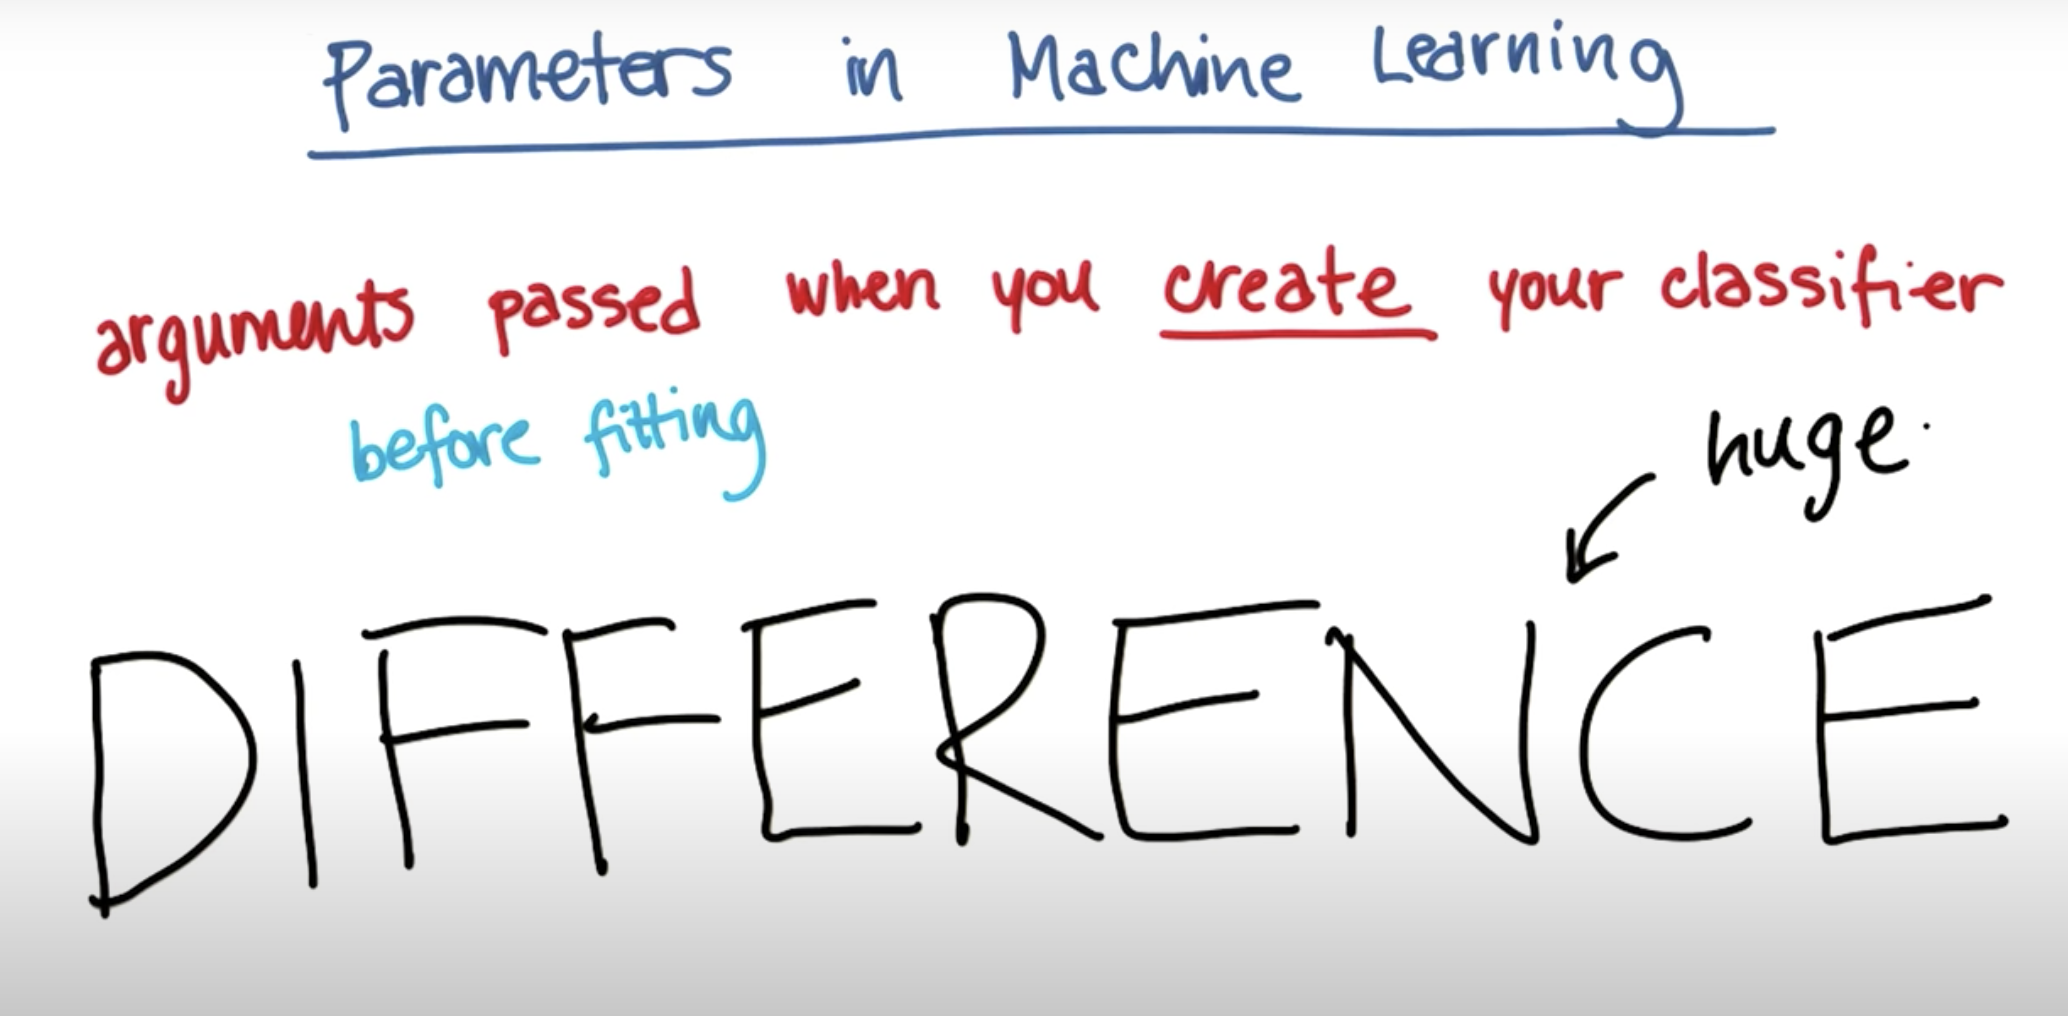 Parameters in Machine Learning
arguments passed when you create your classifier
before fitting
huge.
DIFFERENCE